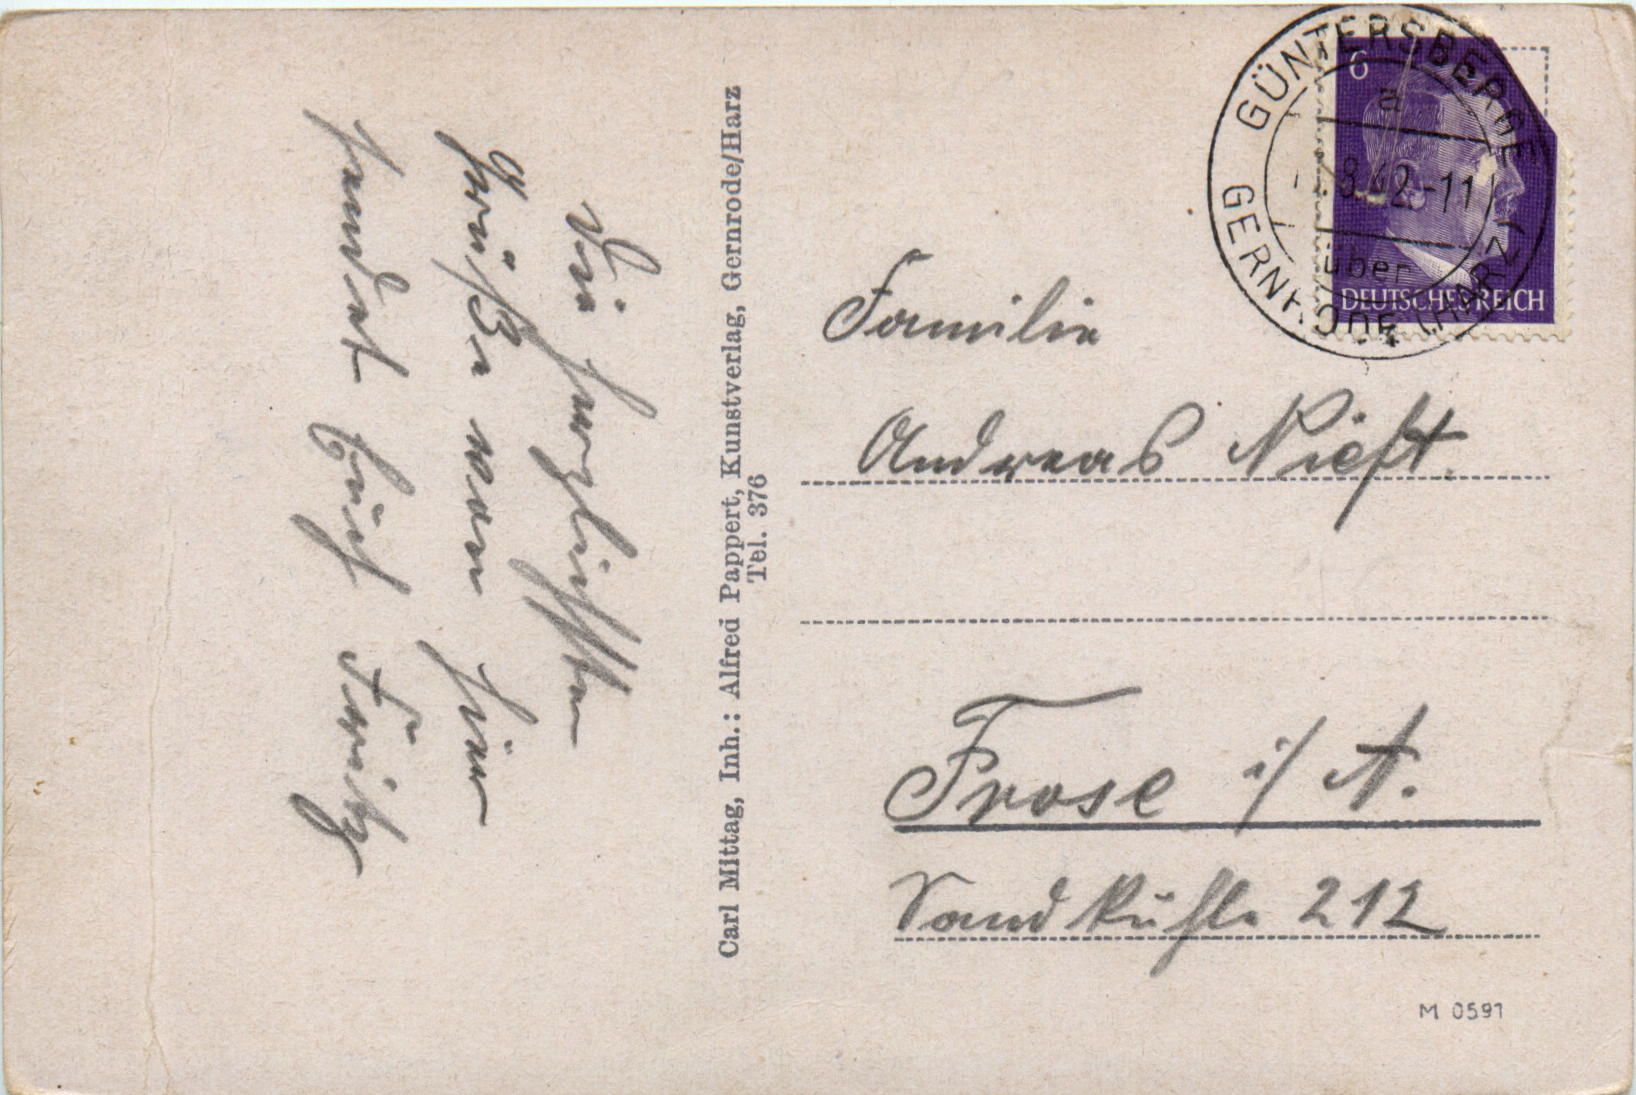 Die herzlichsten
Grüße von hier
sendet Euch Fritz
Carl Mittag, Inh.: Alfred Pappert, Kunstverlag, Gernrode/Harz
Tel. 376
6
DEUTSCHES REICH
GÜNTERSBERGE
a
.8.42.-11
über
GERNRODE (HARZ)
Familie
Andreas
Frose i/A.
Sandkuhle 212
M 0591